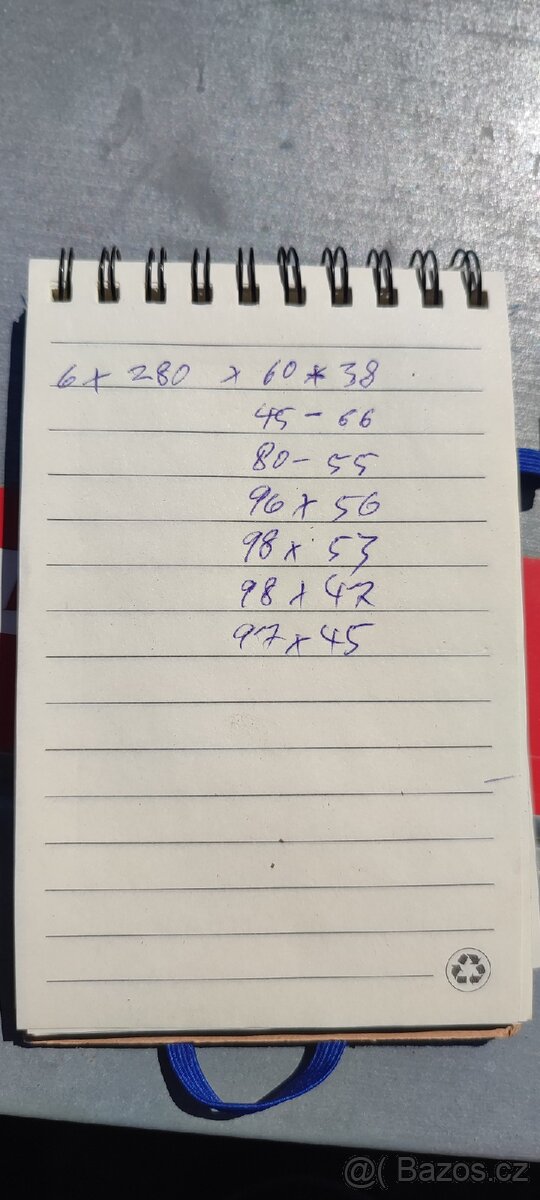 6 x 280 x 60 x 38
45 - 66
80 - 55
96 x 56
98 x 53
98 x 47
97 x 45
@( Bazos.cz